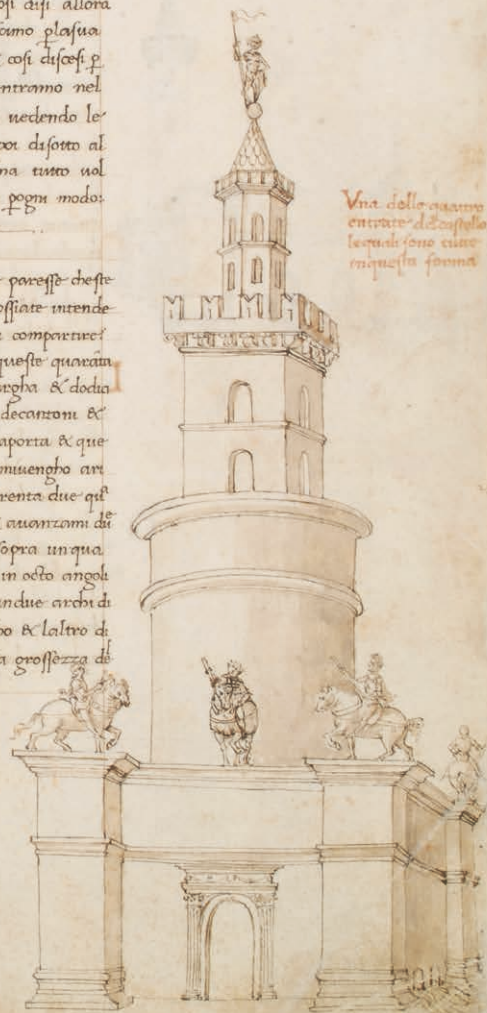 osi disi allora
amo plasua
cosi discesi p
ntramo nel
vedendo le
poi disotto al
na tutto vol
pogni modo:
paresse cheste
ossiate intende
compartire:
queste quarata
argha & dodici
decantoni &
aporta & que
nivengho ari
renta due qu
avanzami du
sopra unqua
in octo angoli
undue archi di
po & laltro di
a grossezza de
Una delle quattro
entrate del castello
lequali sono tutte
inquesta forma